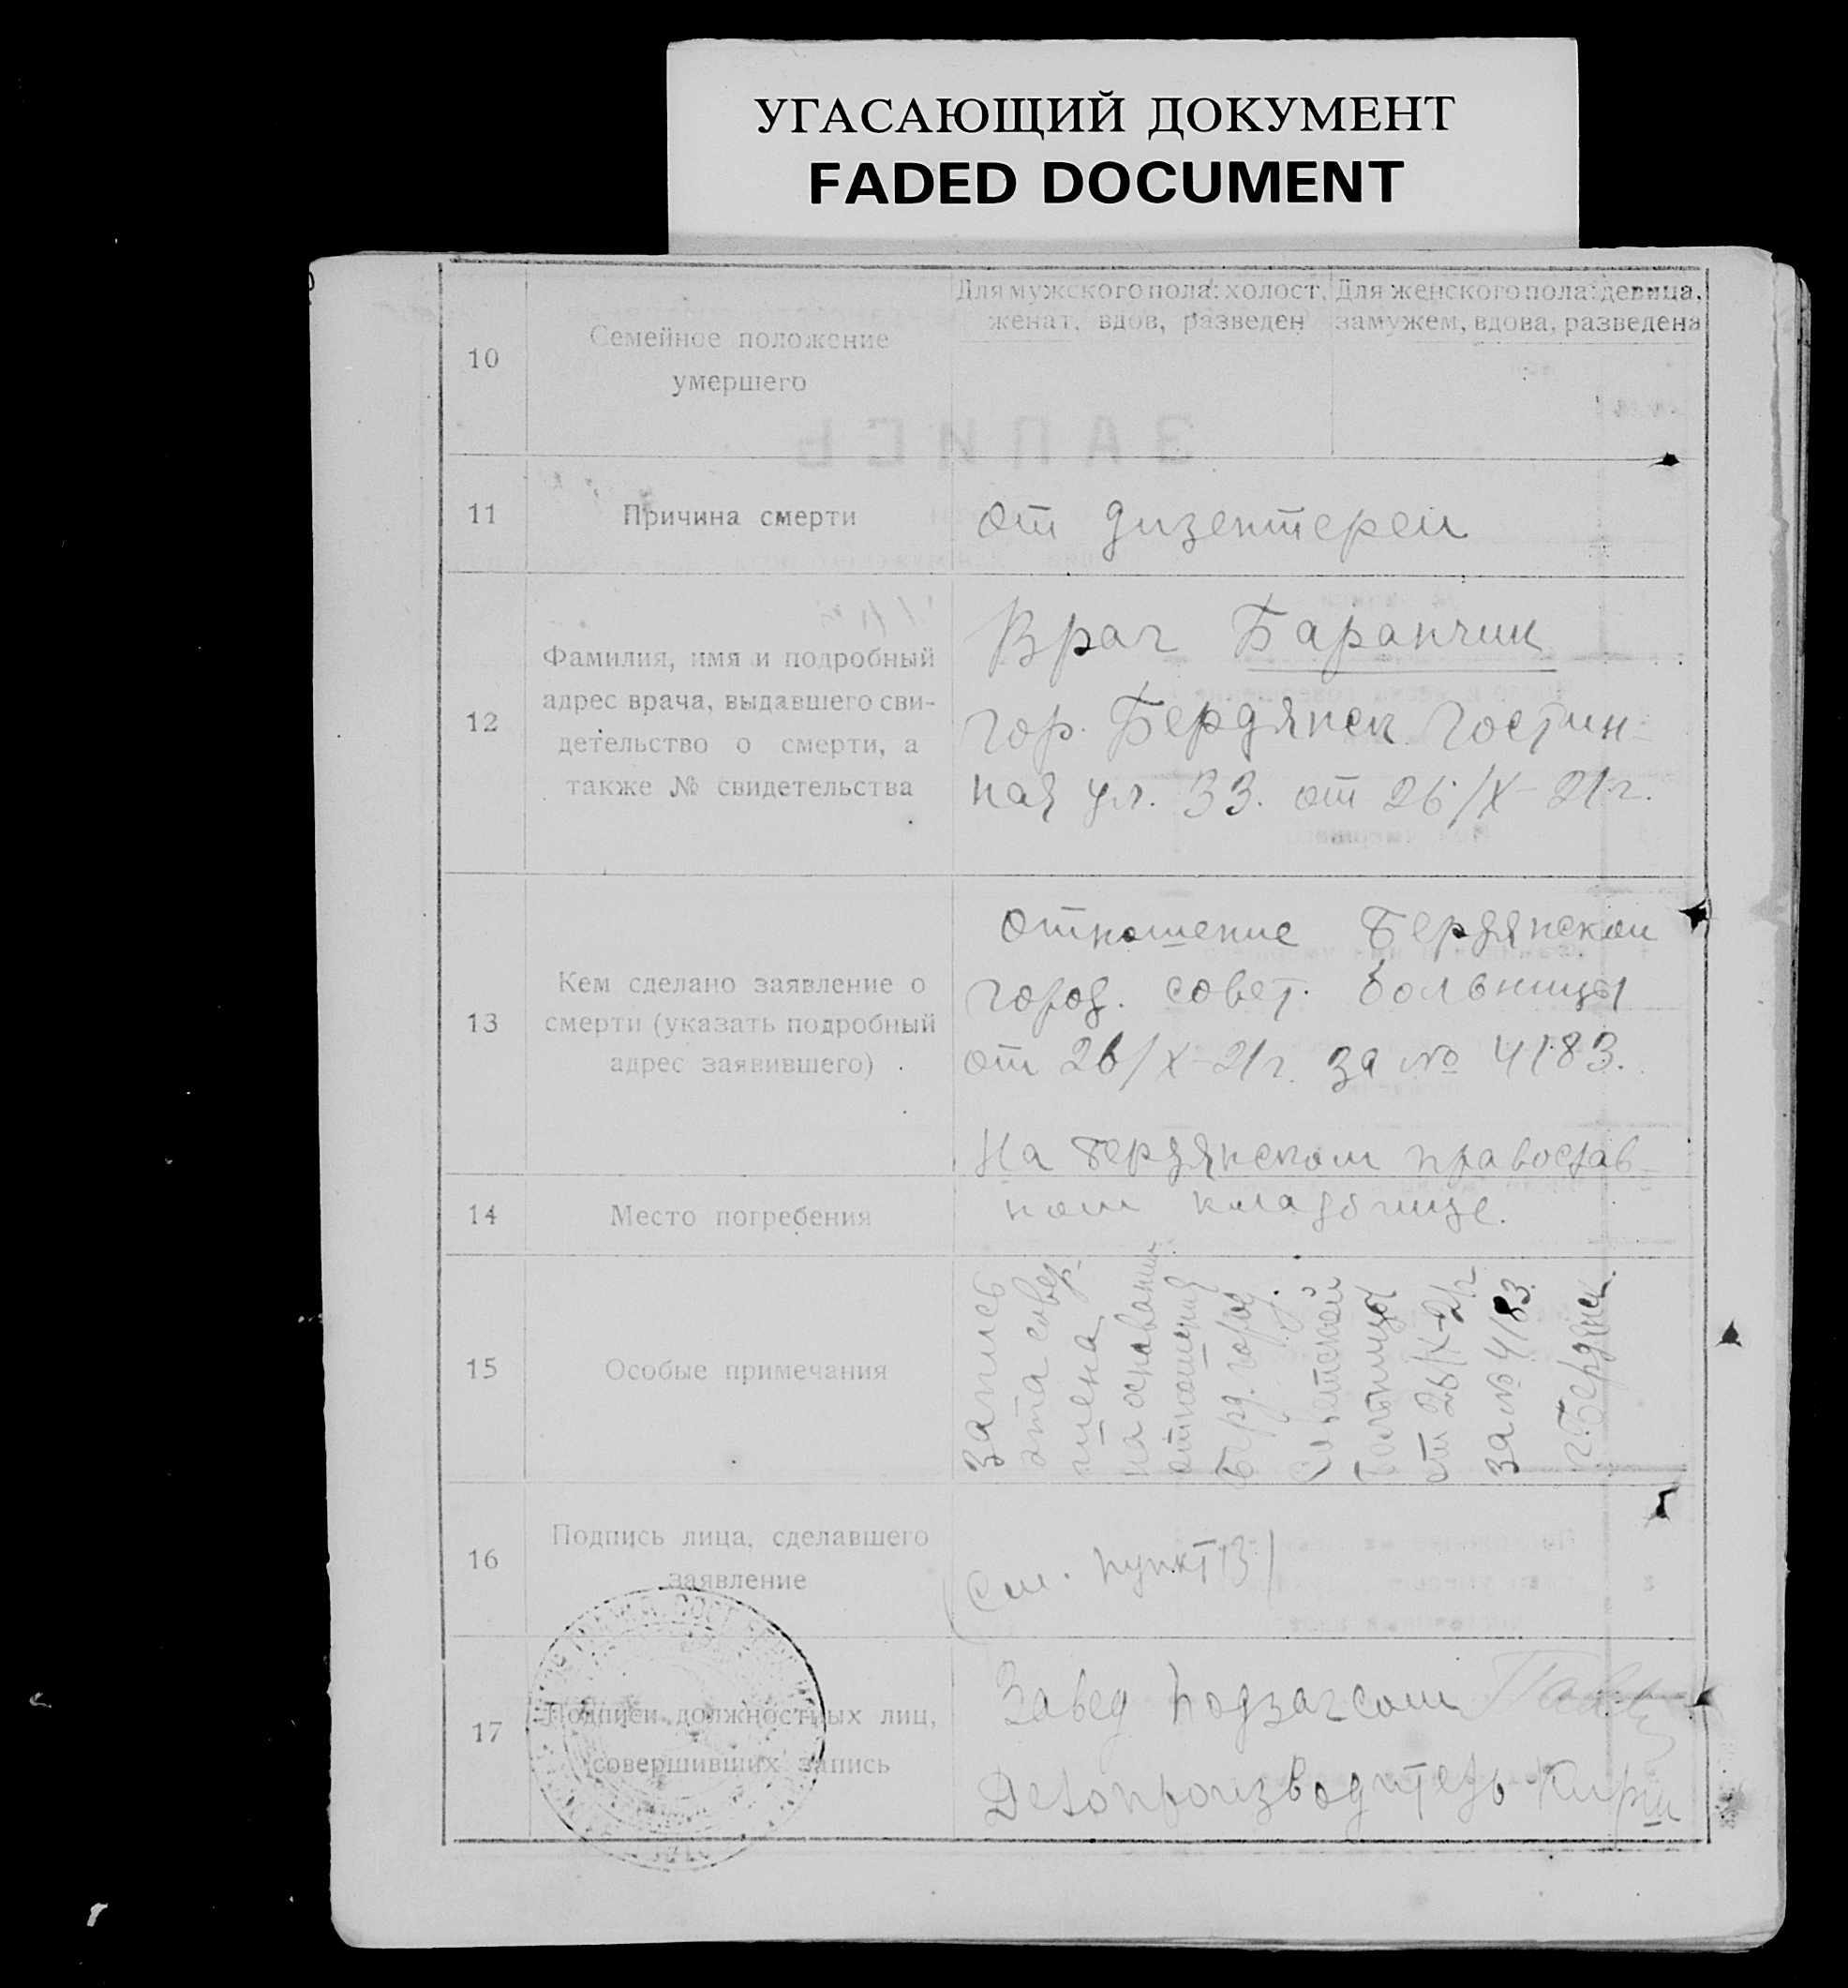 УГАСАЮЩИЙ ДОКУМЕНТ
FADED DOCUMENT
10
Семейное положение
умершего
Для мужского пола: холост,
женат, вдов, разведен
Для женского пола: девица,
замужем, вдова, разведена
11
Причина смерти
от дизентереи
12
Фамилия, имя и подробный
адрес врача, выдавшего сви-
детельство о смерти, а
также № свидетельства
Врач Баранчик
гор. Бердянск Гостин-
ная ул. 33. от 26/X-21г.
13
Кем сделано заявление о
смерти (указать подробный
адрес заявившего)
Отношение Бердянской
город. совет. больницы
от 26/X-21г. за № 4183.
14
Место погребения
На Бердянском православ-
ном кладбище.
15
Особые примечания
Запись
эта совер-
шена
на основании
отношения
Берд. город.
Советской
больницы
от 26/X-21г
за № 4183.
г. Бердянск.
16
Подпись лица, сделавшего
заявление
(См. пункт 13)
17
Подписи должностных лиц,
совершивших запись
Завед Подзагсом
Делопроизводитель